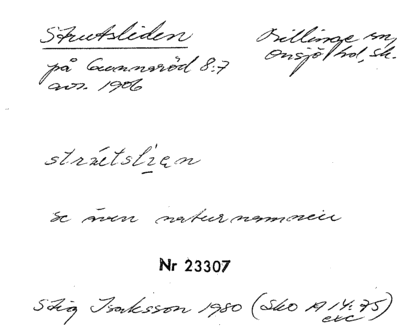 Strutsliden
Billinge sn,
Onsjö hd, Sk.
på Gunnaröd 8:7
avs. 1906
strǽtsli̱en
se även naturnamnen
Nr 23307
Stig Isaksson 1980 (Sko A 14:75)
exc